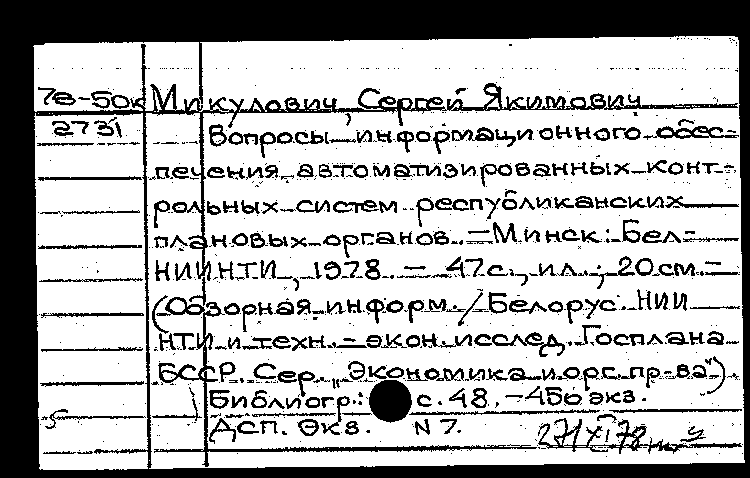 78-50к Микулович, Сергей Якимович
2731 Вопросы информационного обес-
печения автоматизированных конт-
рольных систем республиканских
плановых органов. — Минск: Бел-
НИИНТИ, 1978. — 47с., ил.; 20см. —
(Обзорная информ. / Белорус. НИИ
НТИ и техн. - экон. исслед. Госплана
БССР. Сер. „Экономика и орг. пр-ва").
Библиогр.: с. 48. — 450 экз.
ДСП. Экз. N 7.